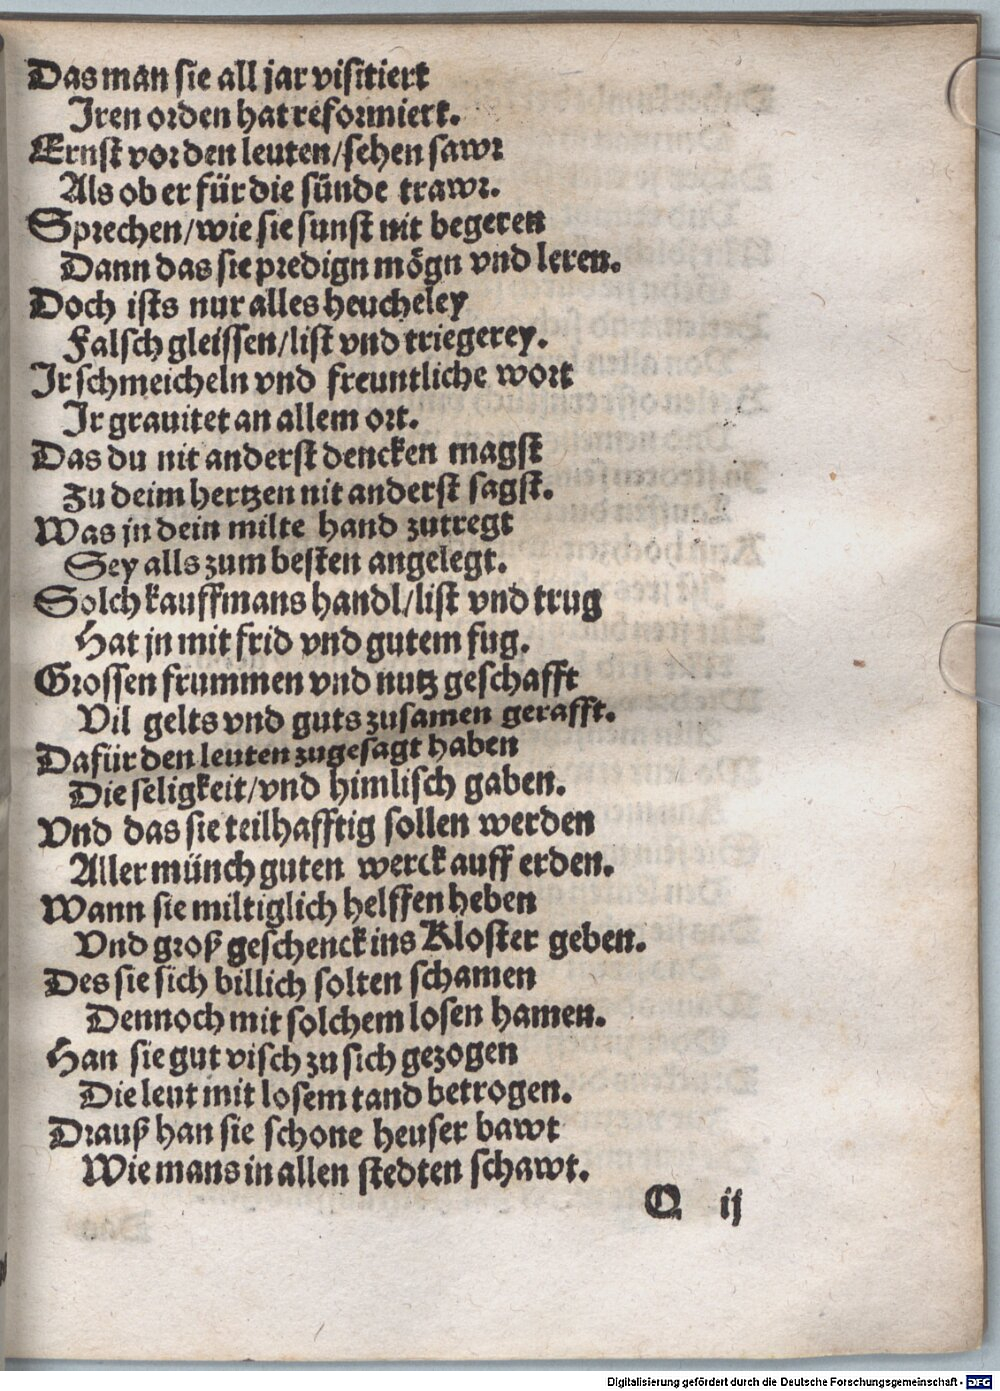 Das man sie all jar visitiert
Iren orden hat reformiert.
Ernst vor den leuten/sehen sawr
Als ob er für die sünde trawr.
Sprechen/wie sie sunst nit begeren
Dann das sie predign mögn vnd leren.
Doch ists nur alles heucheley
Falsch gleissen/list vnd triegerey.
Ir schmeicheln vnd freuntliche wort
Ir grauitet an allem ort.
Das du nit anderst dencken magst
Zu deim hertzen nit anderst sagst.
Was jn dein milte hand zutregt
Sey alls zum besten angelegt.
Solch kauffmans handl/list vnd trug
Hat jn mit frid vnd gutem fug.
Grossen frummen vnd nutz geschafft
Vil gelts vnd guts zusamen gerafft.
Dafür den leuten zugesagt haben
Die seligkeit/vnd himlisch gaben.
Vnd das sie teilhafftig sollen werden
Aller münch guten werck auff erden.
Wann sie miltiglich helffen heben
Vnd groß geschenck ins Kloster geben.
Des sie sich billich solten schamen
Dennoch mit solchem losen hamen.
Han sie gut visch zu sich gezogen
Die leut mit losem tand betrogen.
Drauß han sie schone heuser bawt
Wie mans in allen stedten schawt.
O ij
Digitalisierung gefördert durch die Deutsche Forschungsgemeinschaft - DFG